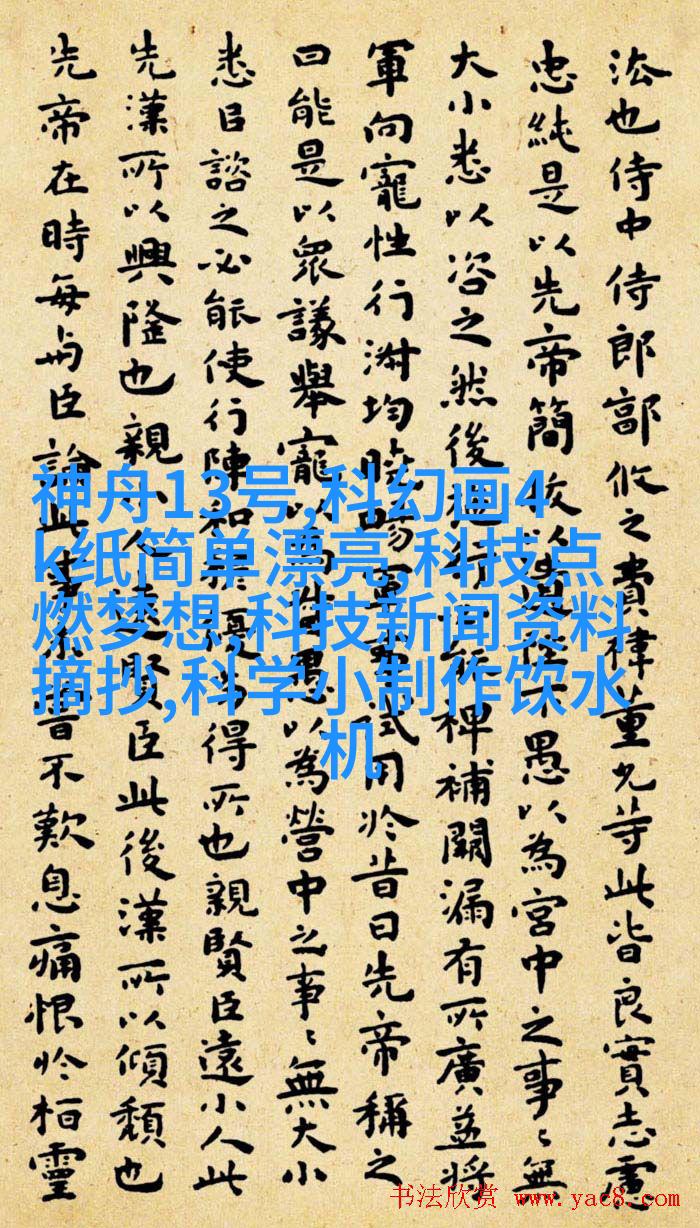 法也侍中侍郎郭攸之費禕董允等此皆良實志慮
忠純是以先帝簡拔以遺陛下愚以為宮中之事〻無
大小悉以咨之然後施行必能裨補闕漏有所廣益將
軍向寵性行淑均曉暢軍事試用於昔日先帝稱之
曰能是以眾議舉寵以為愚以為營中之事〻無大小
悉以諮之必能使行陣和穆優劣得所也親賢臣遠小人此
先漢所以興隆也親小人遠賢臣此後漢所以傾頹也
先帝在時每与臣論此事未嘗不歎息痛恨於桓靈
神舟13号,科幻画4
k纸简单漂亮,科技点
燃梦想,科技新闻资料
摘抄,科学小制作饮水
机
书法欣赏 www.yac8.com